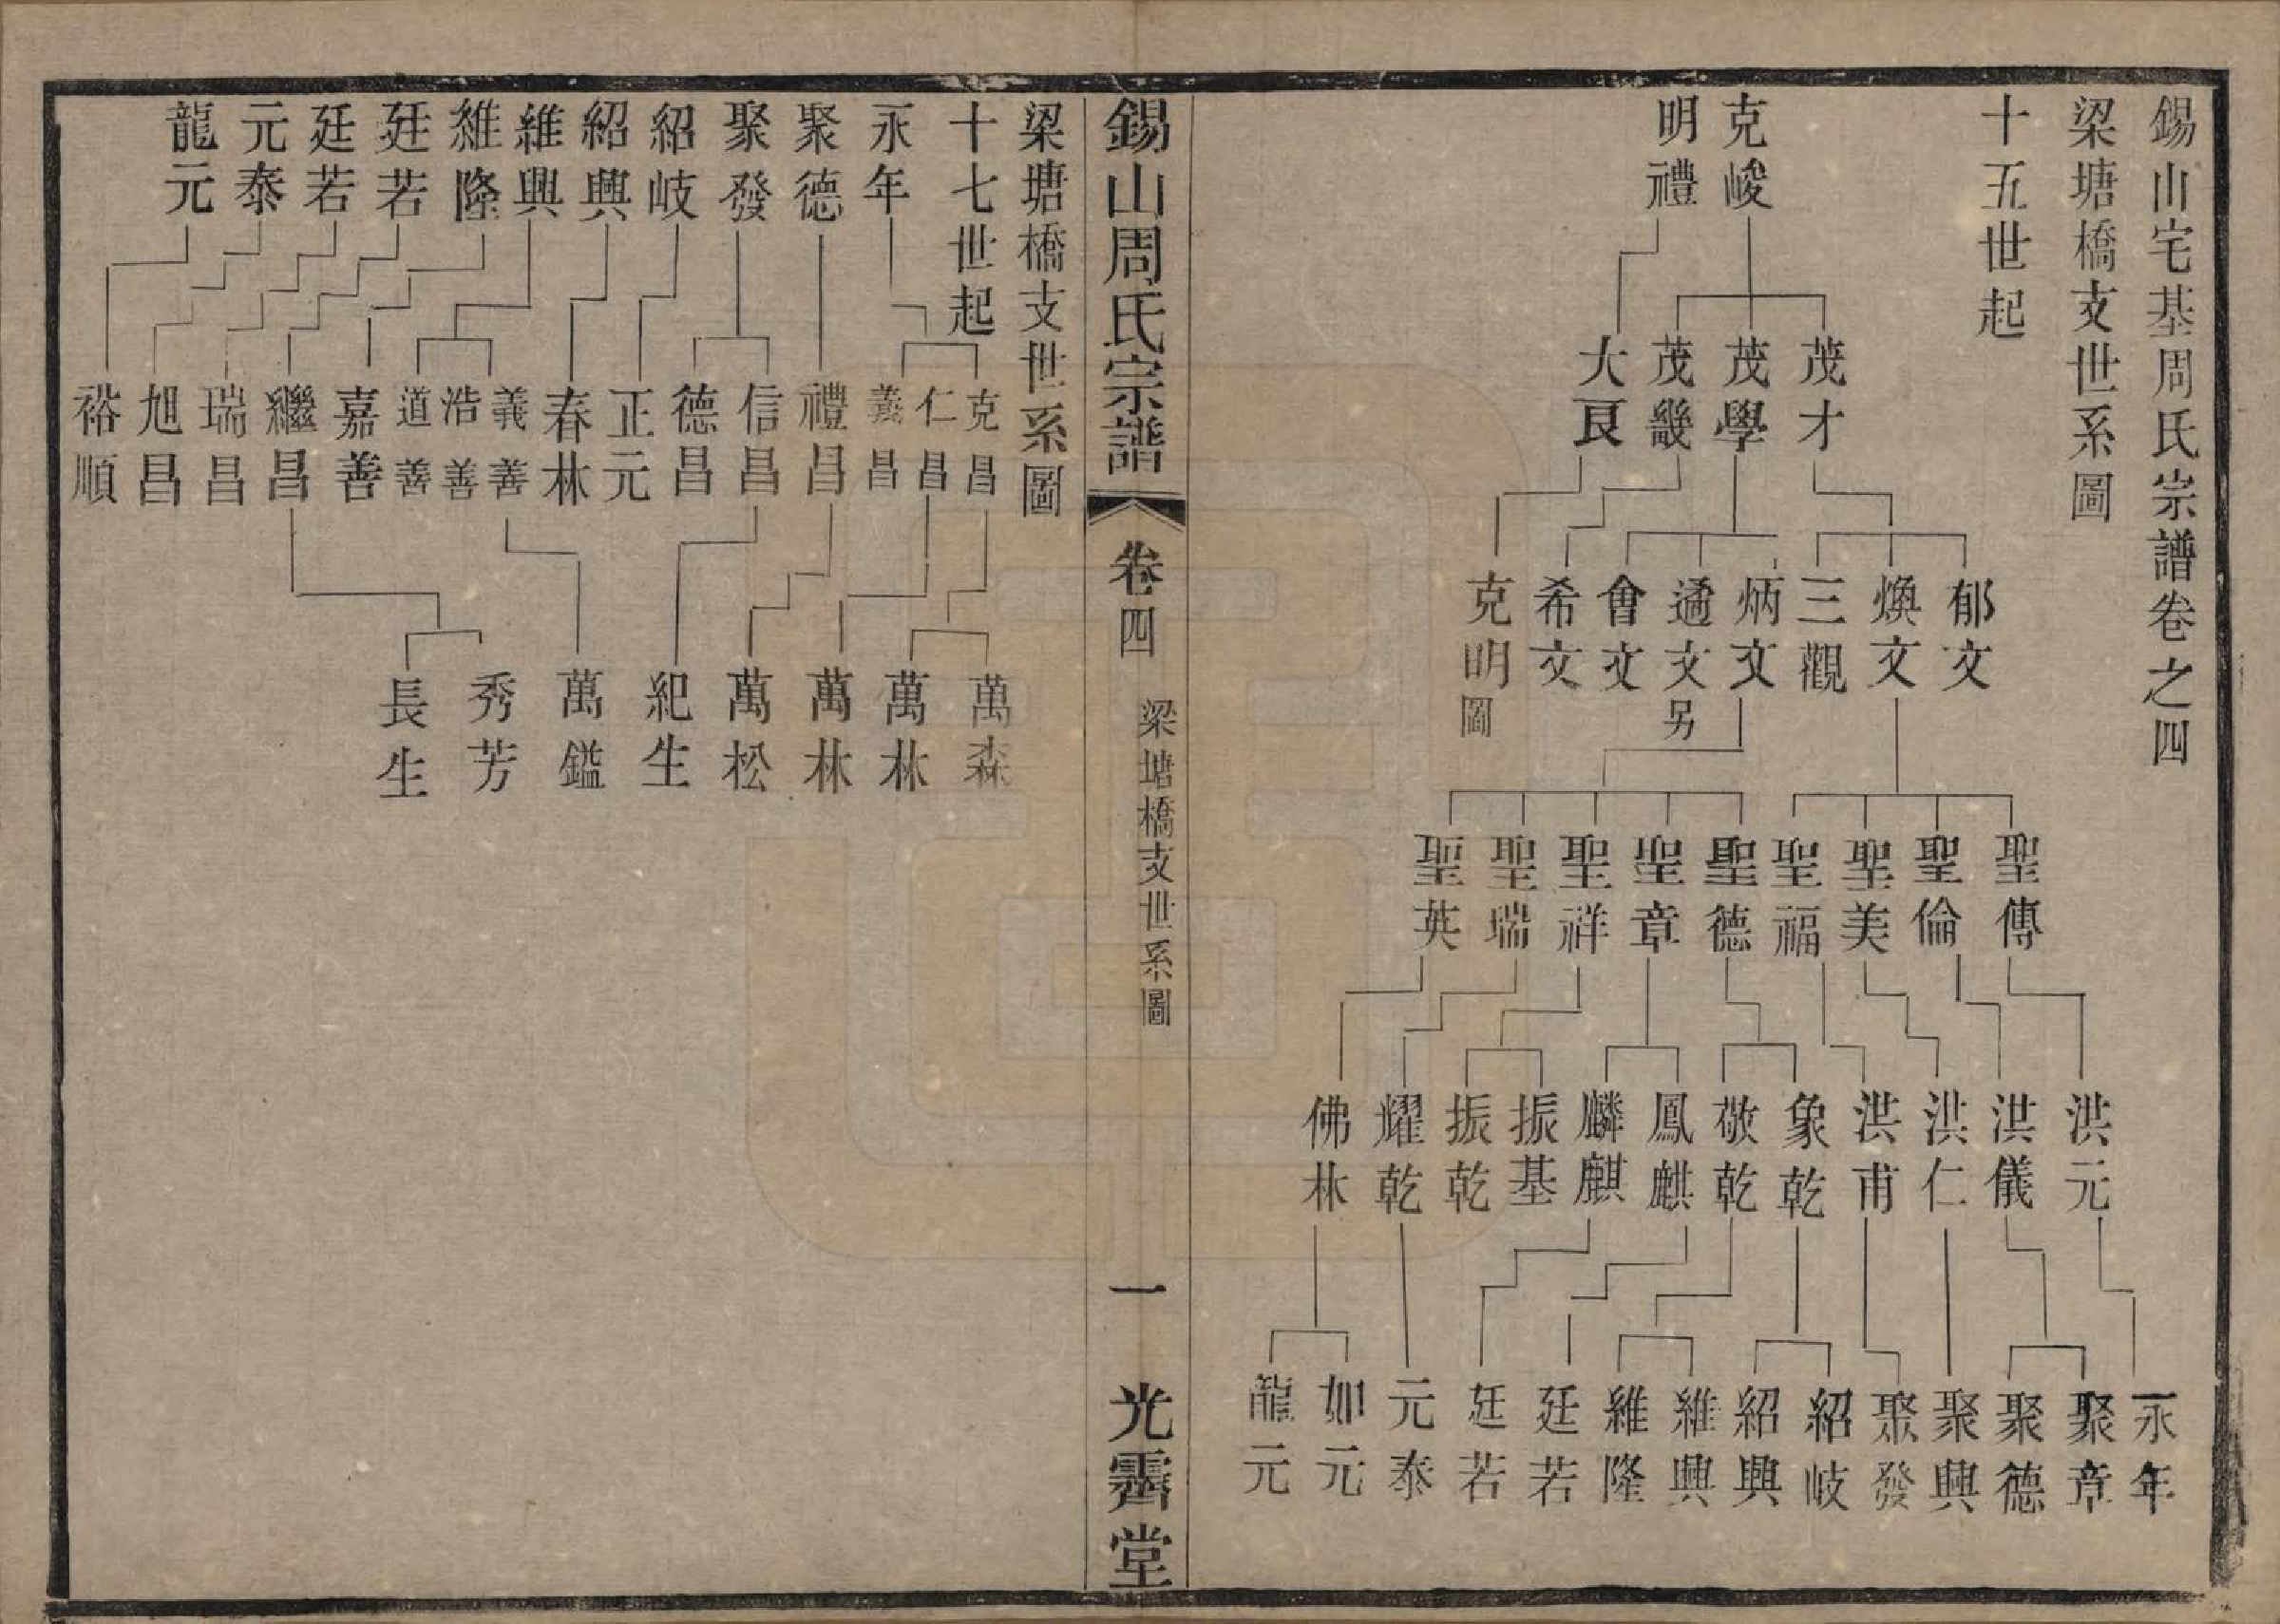 錫山宅基周氏宗譜卷之四
梁塘橋支世系圖
十五世起
克峻
明禮
茂才
茂學
茂畿
大良
郁文
煥文
三觀
炳文
通文另
會文
希文
克明圖
聖傳
聖倫
聖美
聖福
聖德
聖章
聖祥
聖瑞
聖英
洪元
洪儀
洪仁
洪甫
象乾
敬乾
鳳麒
麟麒
振基
振乾
耀乾
佛林
永年
聚章
聚德
聚興
聚發
紹岐
紹興
維興
維隆
廷若
廷若
元泰
如元
龍元
錫山周氏宗譜
卷四
梁塘橋支世系圖
一
光霽堂
梁塘橋支世系圖
十七世起
永年
聚德
聚發
紹岐
紹興
維興
維隆
廷若
廷若
元泰
龍元
克昌
仁昌
義昌
禮昌
信昌
德昌
正元
春林
義善
浩善
道善
嘉善
繼昌
瑞昌
旭昌
裕順
萬森
萬林
萬林
萬松
紀生
萬鎰
秀芳
長生